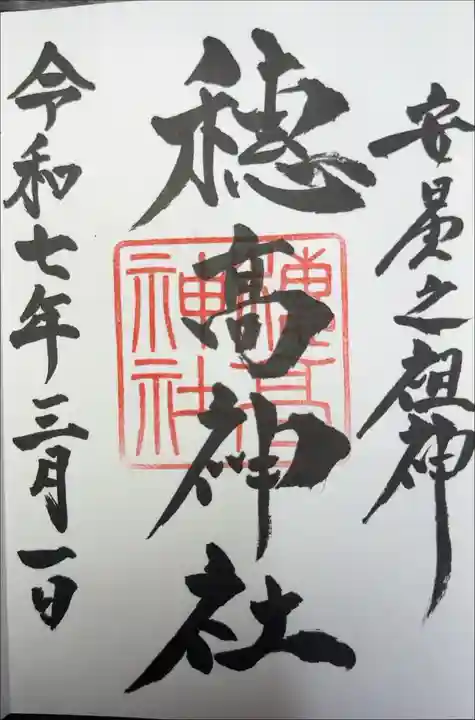 安曇之祖神
穂高神社
穂高
神社
令和七年三月一日